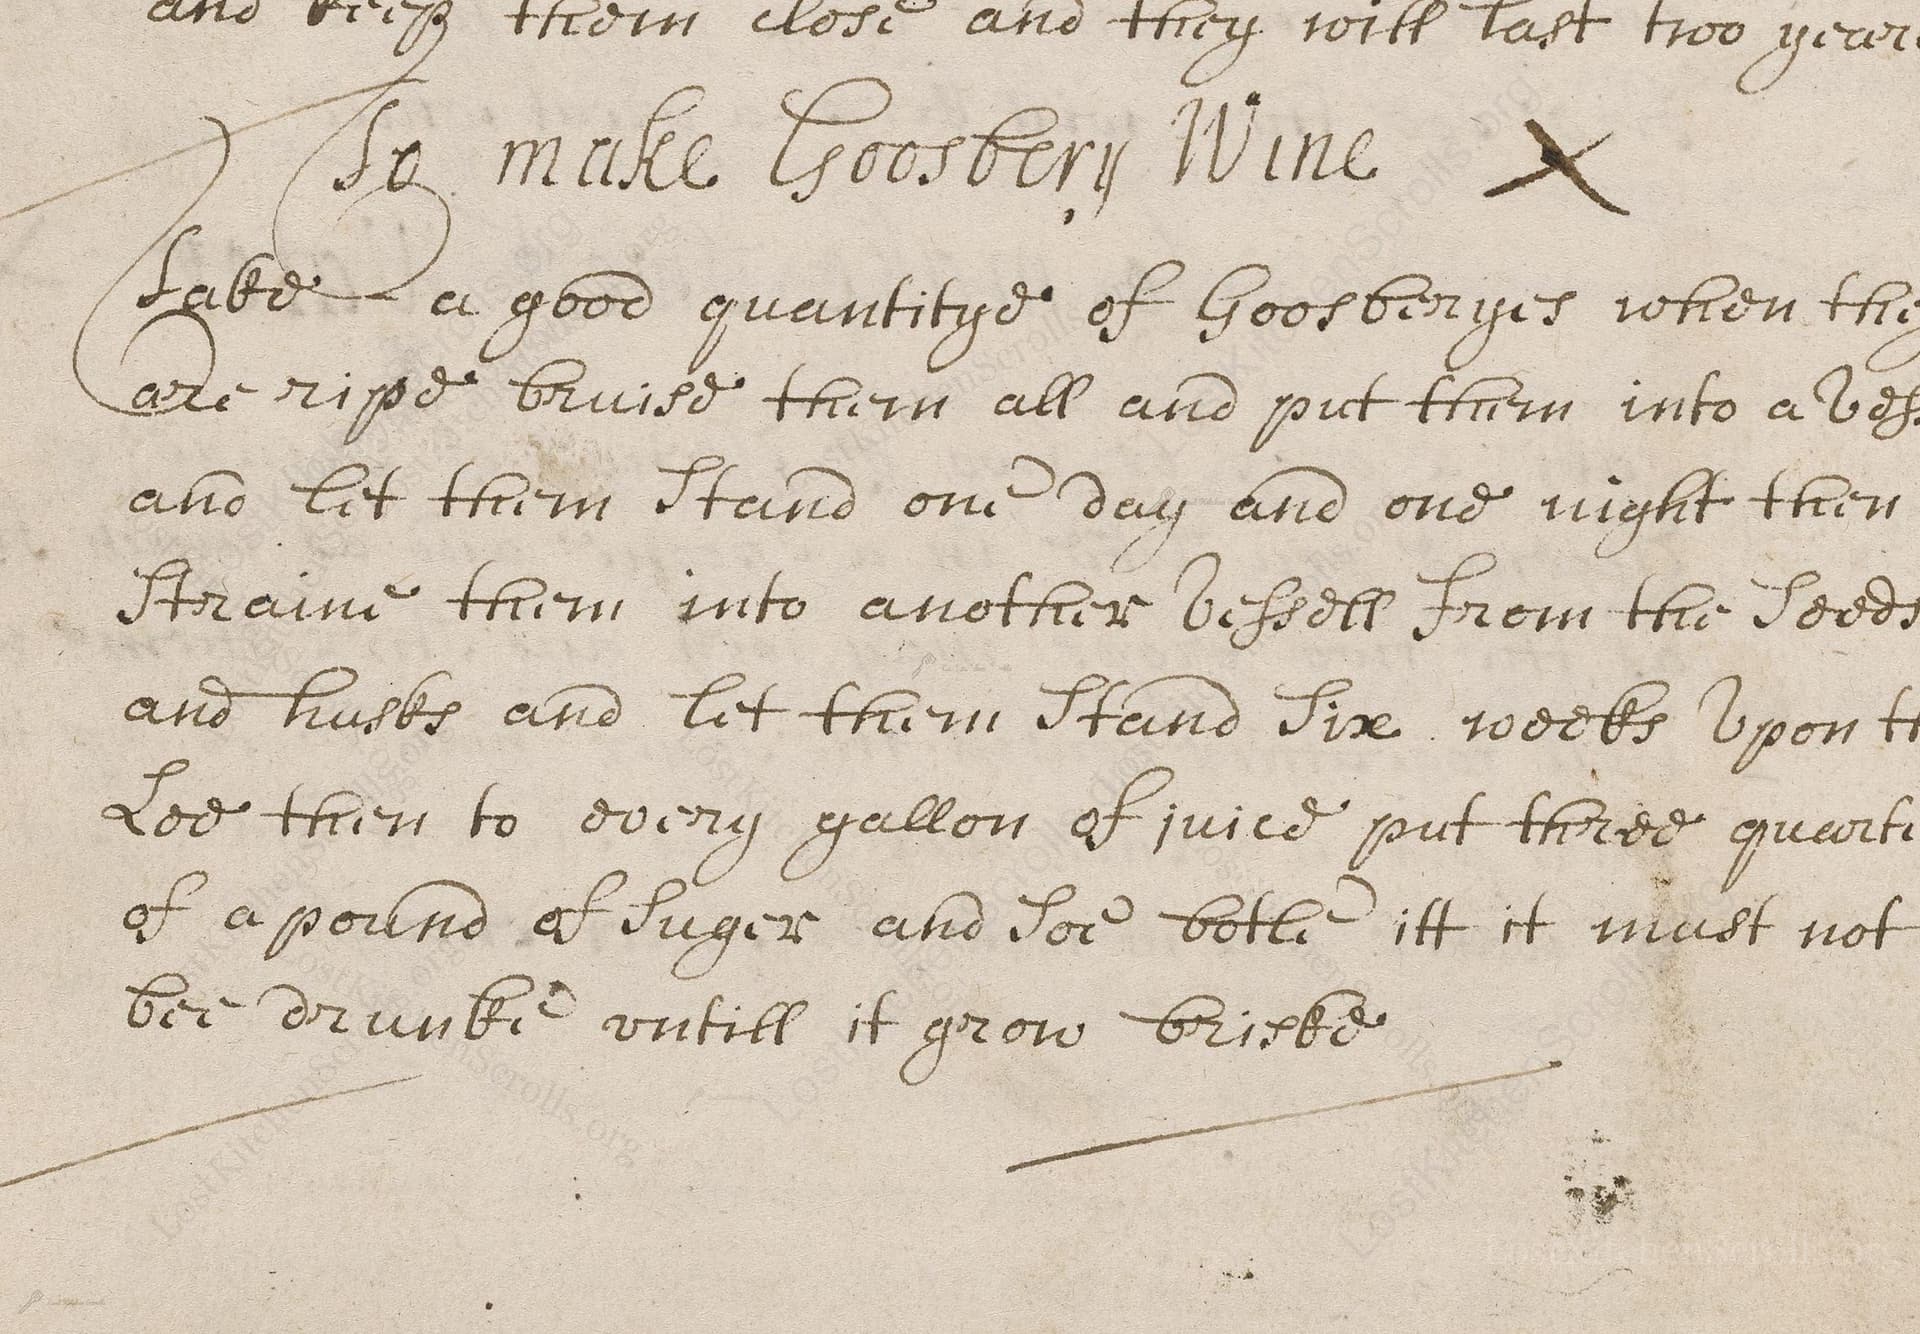 and keep them close and they will last two years
To make Goosbery Wine X
Take a good quantitye of Goosberyes when they
are ripe bruise them all and put them into a Vess
and let them Stand one day and one night then
Straine them into another Vessell from the Seeds
and husks and let them Stand Six weeks Vpon th
Lee then to every gallon of juice put three quarte
of a pound of Suger and Soe botle itt it must not
bee drunke vntill it grow briske
LostKitchenScrolls.org